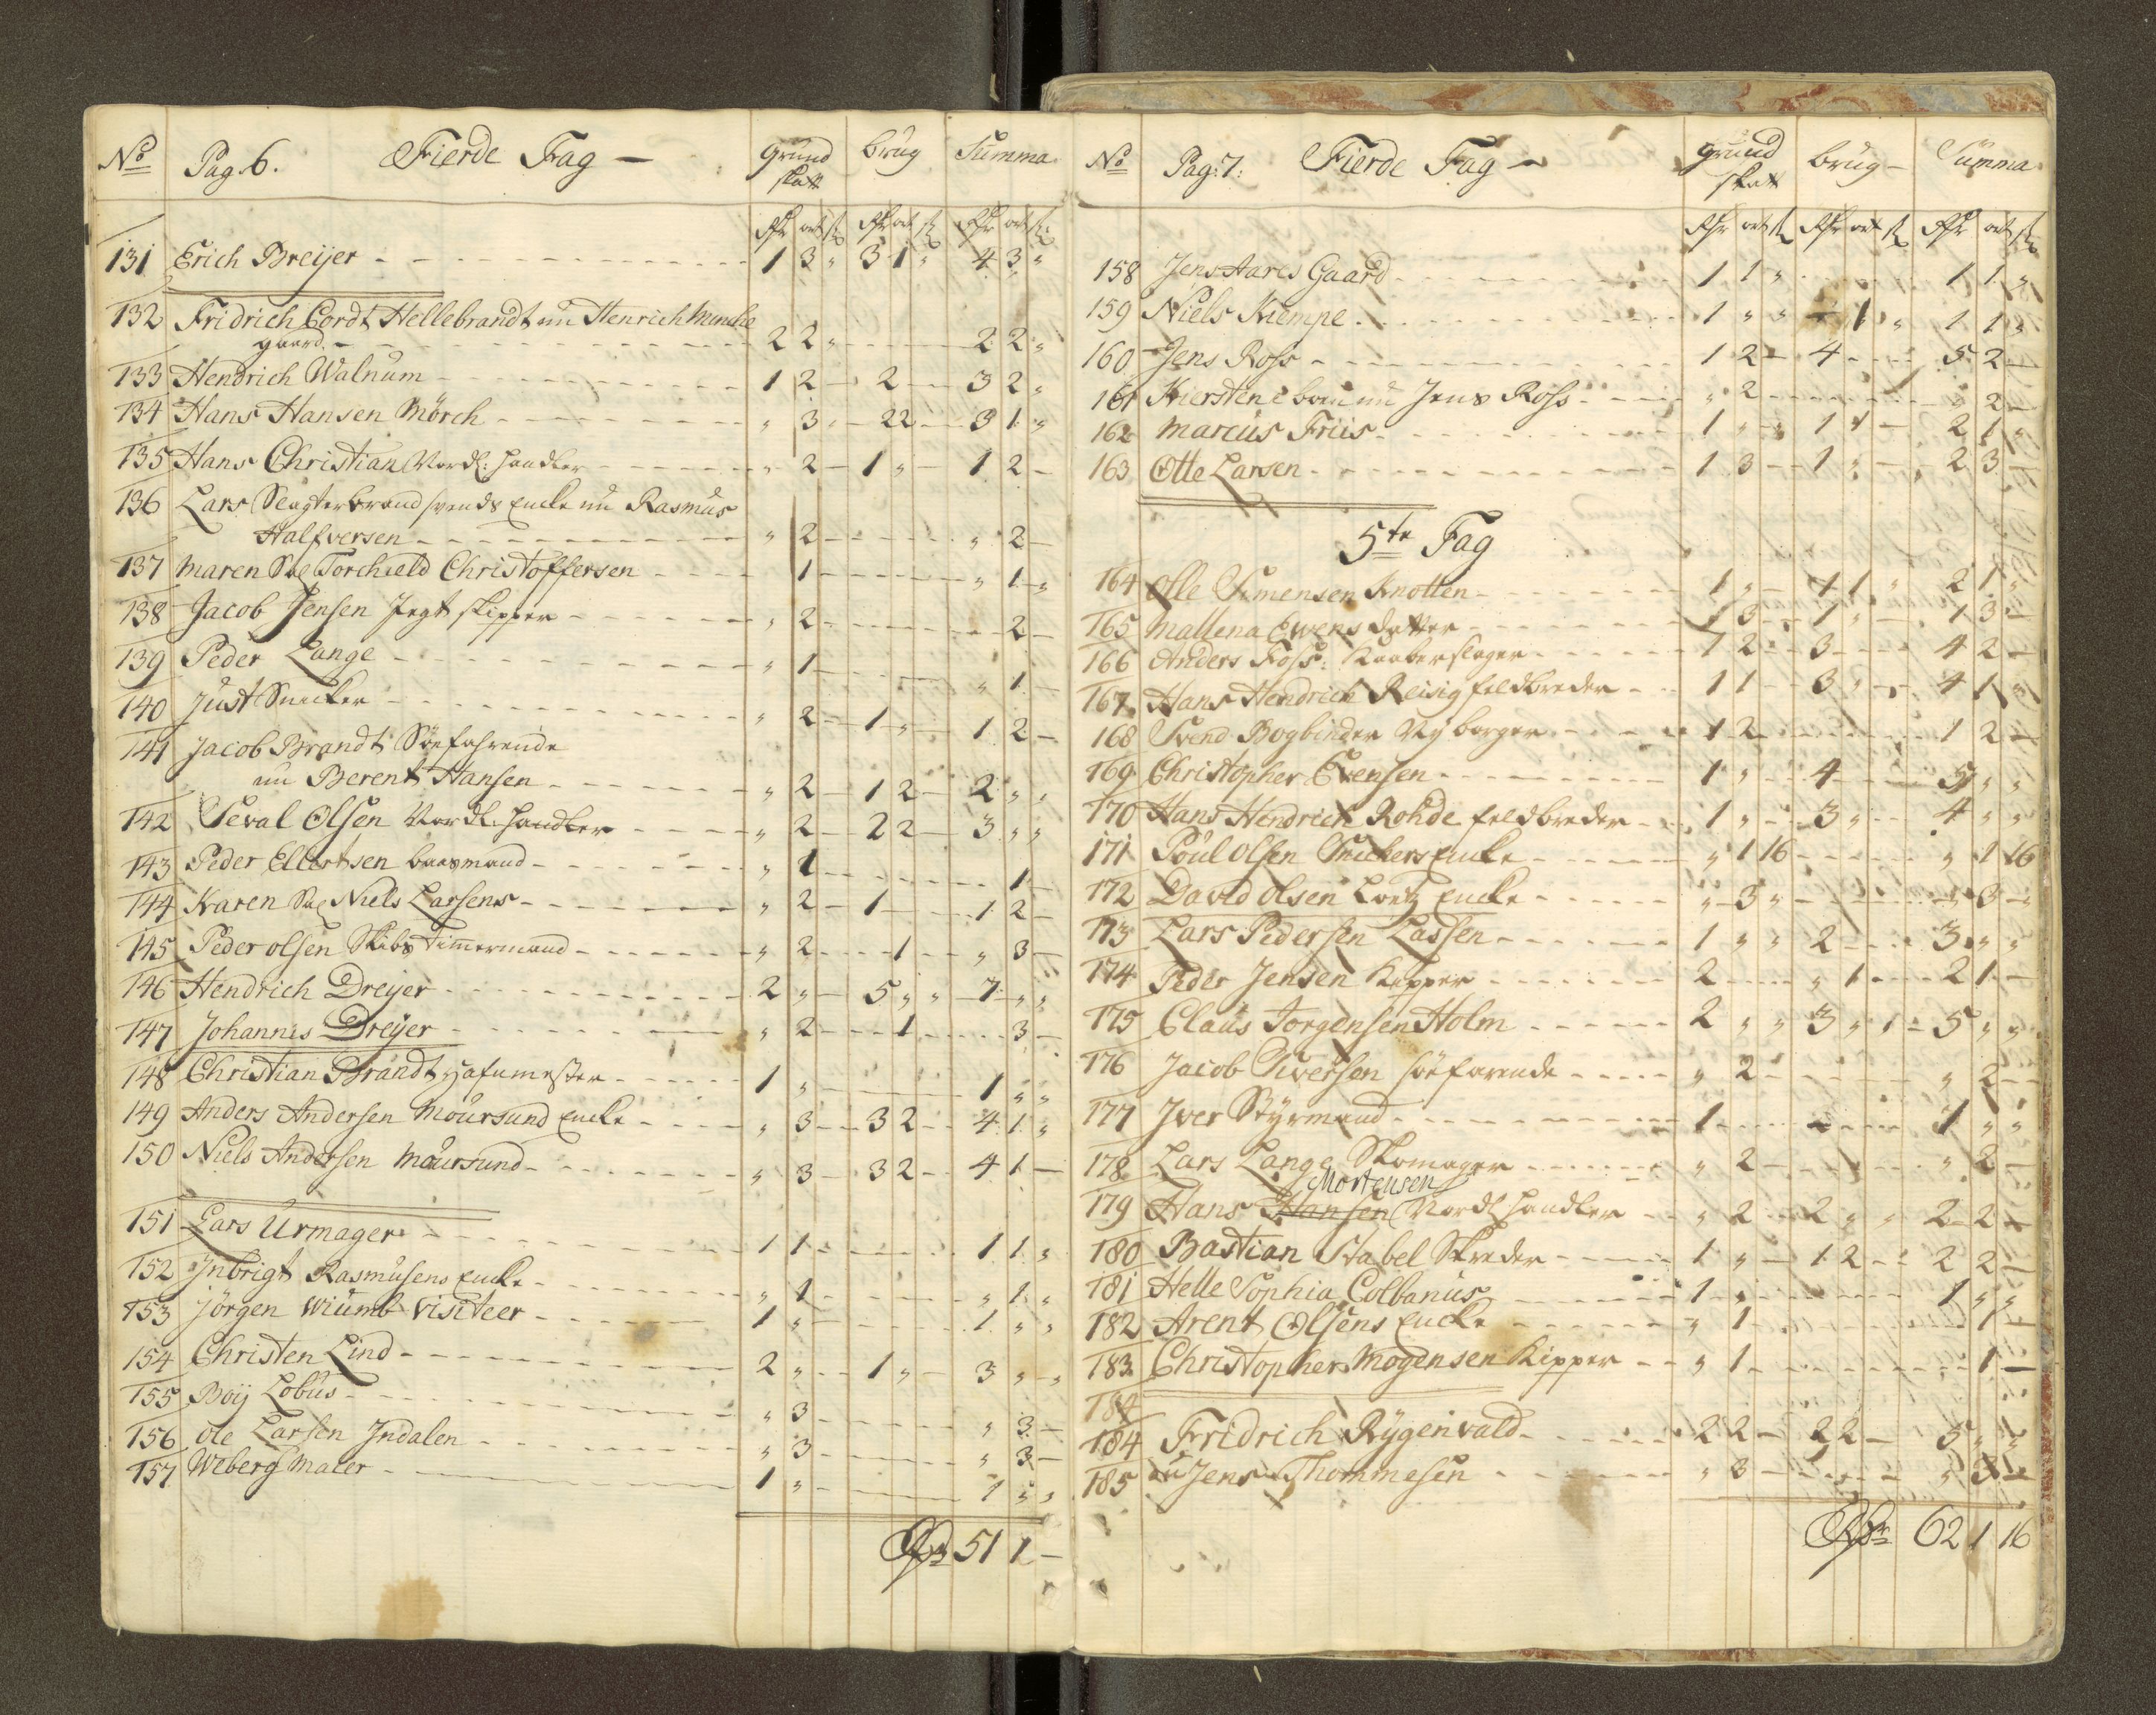 No Pag. 6. Fierde Fag — grund skatt brug Summa
Rdr ort s Rdr ort s Rdr ort s
131 Erich Breijer 1 3 " 3 1 " 4 3 "
132 Fridrich Cordt Hellebrandt nu Henrich Munche
gaard. 2 2 " 2 2 "
133 Hendrich Walnum 1 2 - 2 - 3 2 "
134 Hans Hansen Mörch " 3 " 2 2 - 3 1 "
135 Hans Christian Nordl: Handler " 2 - 1 " - 1 2 -
136 Lars Slagterbrand svends Encke nu Rasmus
Halfversen " 2 - " 2 -
137 Maren Sal Torchield Christoffersen 1 - " 1 "
138 Jacob Jensen Jegt skipper " 2 - 2 -
139 Peder Lange " 1 - " 1 -
140 Just Snecker " 2 - 1 " - 1 2 -
141 Jacob Brandt Söefahrende
nu Berent Hansen " 2 - 1 2 - 2 " "
142 Seval Olsen Nordl. Handler " 2 - 2 2 - 3 " "
143 Peder Ellertsen baasmand " 1 - 1 -
144 Karen Sal Niels Larsens " 2 - 1 - 1 2 -
145 Peder olsen Skibs Timmermand " 2 - 1 - " 3 -
146 Hendrich Dreijer 2 " - 5 " " 7 " "
147 Johannes Dreijer " 2 - 1 - 3 -
148 Christian Brandt Hafnmester 1 " - 1 " "
149 Anders Andersen Moursund Encke " 3 - 3 2 - 4 1 "
150 Niels Andersen Moursund " 3 - 3 2 - 4 1 -
151 Lars Urmager 1 1 - 1 1 "
152 Inbrigt Rasmusens Encke " 1 - " 1 "
153 Jörgen Wiumb Visiteer 1 " - 1 " "
154 Christen Lind 2 " - 1 " - 3 " "
155 Boij Lobus " 3 - " 3 -
156 ole Larsen Indalen " 3 - " 3 -
157 Weberg Maler 1 " - 1 " "
Rdr 51 1 -
No Pag: 7: Fierde Fag — grund skatt brug — Summa
Rdr ort s Rdr ort s Rdr ort s
158 Jens Aares Gaard 1 1 " 1 1 "
159 Niels Kiempe 1 " " 1 " 1 1 "
160 Jens Ross 1 2 - 4 - 5 2 -
161 Kierstene nu Jens Ross " 2 - " 2 -
162 Marcus Friis 1 " " 1 1 - 2 1 "
163 Otte Larsen 1 3 - 1 " - 2 3 -
5te Fag
164 Olle Simensen Knotten 1 " - 1 1 " 2 1 "
165 Mallena Ewens datter 3 - 1 " - 1 3 -
166 Anders Foss: Kaaberslager 1 2 - 3 - 4 2 -
167 Hans Hendrich Reisig feldbreder 1 1 - 3 " - 4 1 "
168 Svend Bogbinder Ny borger 1 2 - 1 2 -
169 Christopher Evensen 1 " - 4 - 5 " "
170 Hans Hendrich Rohde feldbreder 1 " - 3 " - 4 " "
171 Poul olsen Snickers Encke " 1 16 - " 1 16
172 David olsen Encke " 3 " - " 3 -
173 Lars Pedersen Lassen 1 " " 2 - 3 " "
174 Peder Jensen Kipper 2 - " 1 - 2 1 -
175 Claus Jorgensen Holm 2 " " 3 " " 5 " "
176 Jacob Siversen söefarende " 2 - " 2 -
177 Iver Styrmand 1 - 1 " "
178 Lars Lange Skomager " 2 - " 2 -
Mortensen
179 Hans Hansen Nordl Handler " 2 - 2 " " 2 2 -
180 Bastian Stabel Skreder 1 " - 1 2 - 2 2 -
181 Helle Sophia Colbanus 1 " - 1 " "
182 Arent Olsens Encke " 1 - 1 -
183 Christopher Mogensen Kipper " 1 - 1 -
184
184 Fridrich Rÿgenvald 2 2 - 2 2 - 5 " "
185 nu Jens Thommesen " 3 - " 3 -
Rdr 62 1 16